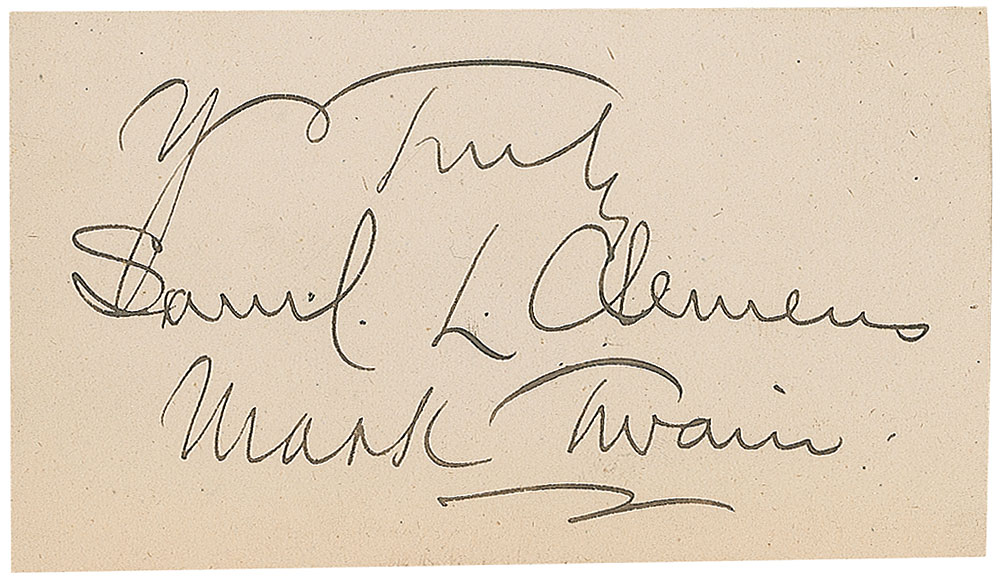 Y Truly
Saml. L. Clemens
Mark Twain.